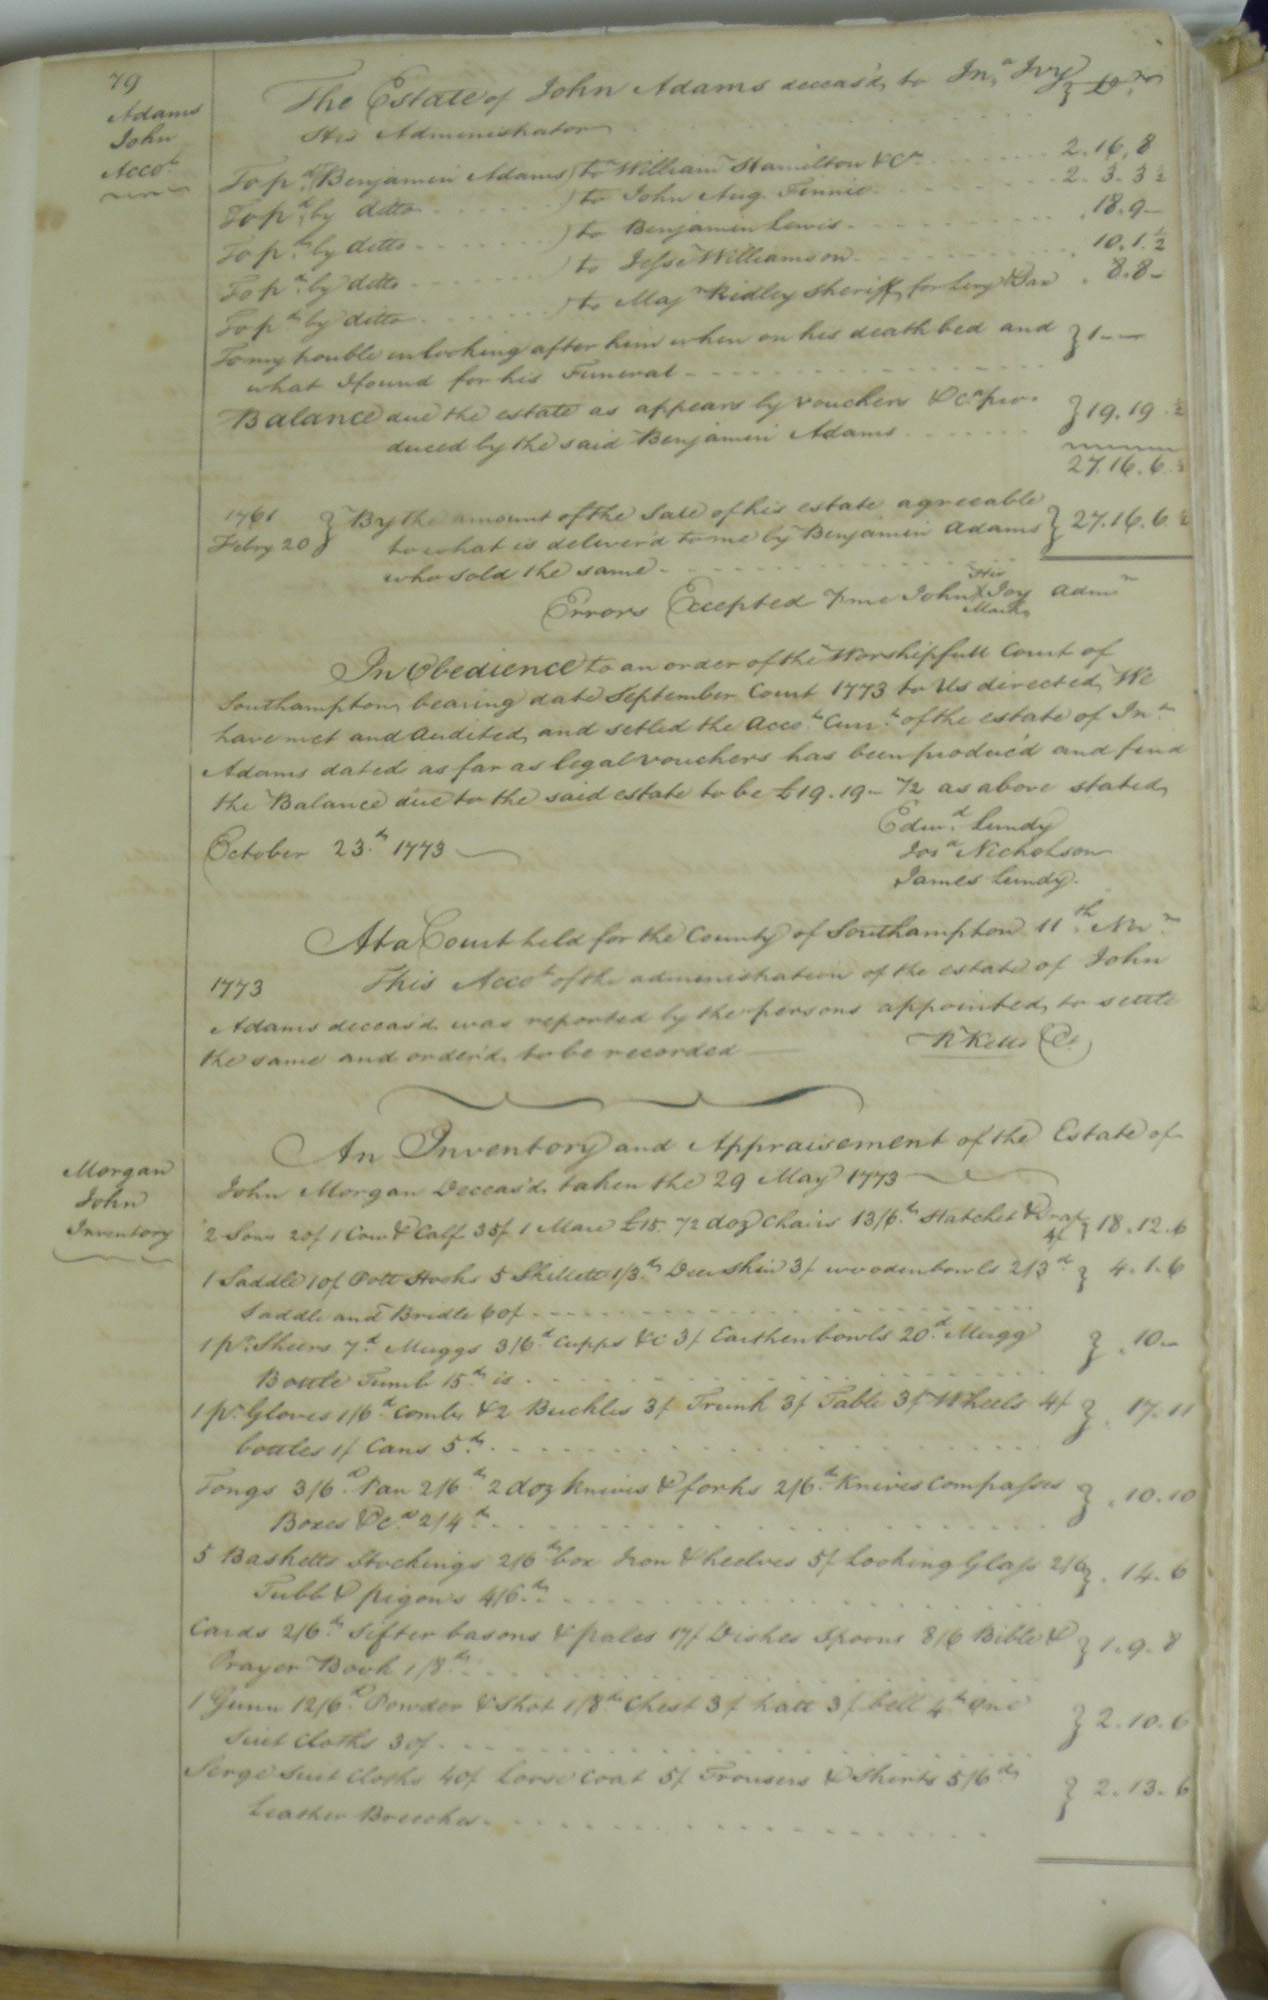 79
Adams
John
Acco.t
The Estate of John Adams deceas'd, to Jn.o Ivy } D.r
His Administrator
To p.d Benjamin Adams) to William Hamilton & C.o 2.16.8
To p.d by ditto ) to John Aug. Finnie 2.3.3 1/2
To p.d by ditto ) to Benjamin Lewis .18.9
To p.d by ditto ) to Jesse Williamson 10.1 1/2
To p.d by ditto ) to Maj.r Ridley Sheriff for Levy & Tax . 8.8
To my trouble in looking after him when on his deathbed and } 1 - -
what I found for his Funeral
Balance due the estate as appears by vouchers &c.a pro- } 19.19. 1/2
duced by the said Benjamin Adams
27.16.6 1/2
1761
Febry 20 } By the amount of the Sale of his estate agreeable } 27.16.6 1/2
to what is deliver'd to me by Benjamin Adams
who sold the same
Errors Excepted p me John His X Mark Ivy Adm.r
In Obedience to an order of the Worshipfull Court of
Southampton, bearing date September Court 1773 to Us directed, We
have met and Audited, and setled the Acco.t Curr.t of the estate of Jn.o
Adams dated as far as legal vouchers has been produc'd and find
the Balance due to the said estate to be £19.19 - 1/2 as above stated,
October 23.d 1773
Edw.d Lundy
Jos.a Nicholson
James Lundy.
At a Court held for the County of Southampton 11.th Nov.r
1773 This Acco.t of the administration of the estate of John
Adams deceas'd, was reported by the persons appointed, to settle
the same and order'd, to be recorded
R Kello Ct
An Inventory and Appraisement of the Estate of
Morgan
John
Inventory
John Morgan Deceas'd, taken the 29 May 1773
2 Sows 20/ 1 Cow & Calf 35/ 1 Mare £15. 1/2 doz Chairs 13/6.d Hatchet & 4/ } 18.12.6
1 Saddle 10/ Pott Hooks 5 Skillett 1/3.d Deer Skin 3/ wooden bowls 2/3.d } 4.1.6
Saddle and Bridle 60/
1 p.r Sheers 7.d Muggs 3/6.d Cupps &c 3/ Earthen bowls 20.d Mugg } .10
Bottle Tumb 15.d is
1 p.r Gloves 1/6.d Combs & 2 Buckles 3/ Trunk 3/ Table 3/ Wheels 4/ } . 17.11
bottles 1/ Cans 5.d
Tongs 3/6.d Pan 2/6.d 2 doz knives & forks 2/6.d Knives Compasses } . 10.10
Boxes &c.a 2/4.d
5 Basketts Stockings 2/6.d box Iron & heelves 5/ Looking Glass 2/6 } . 14.6
Tubb & pigons 4/6.d
Cards 2/6.d Sifter basons & pales 17/ Dishes Spoons 8/6 Bible & } 1.9.8
Prayer Book 1/8.d
1 Gunn 12/6.d Powder & Shot 1/8.d Chest 3/ hatt 3/ bell 4.d One } 2.10.6
Suit Cloths 30/
Serge Suit Cloths 40/ Loose Coat 5/ Trousers & Shirts 5/6.d } 2.13.6
Leather Breeches